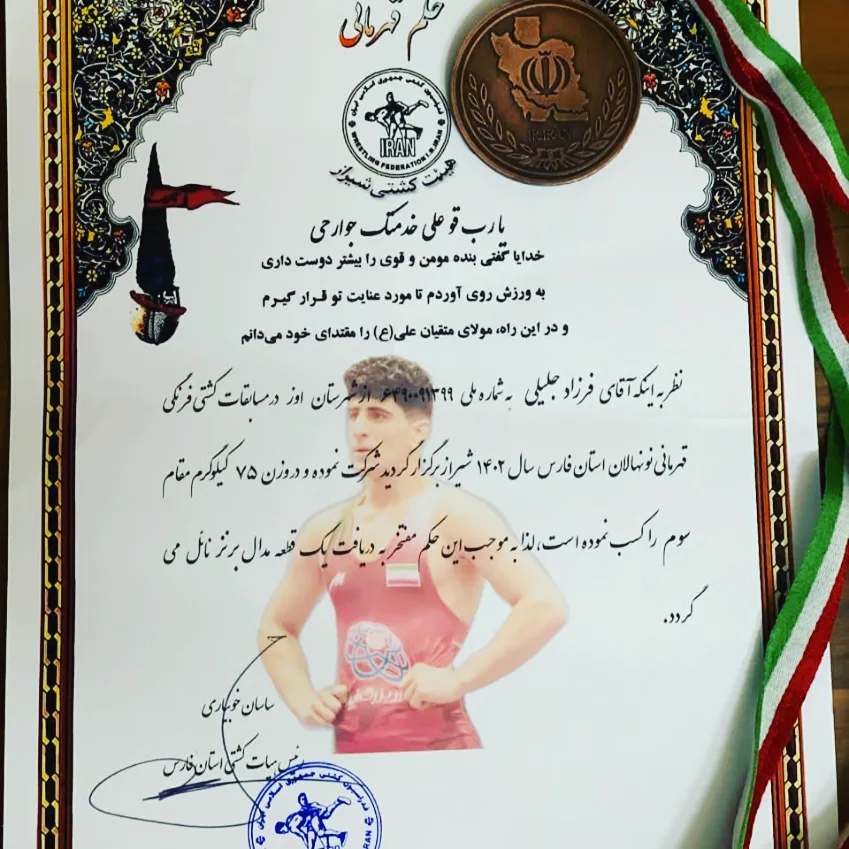 حکم قهرمانی
فدراسیون کشتی جمهوری اسلامی ایران
IRAN
WRESTLING FEDERATION I.R.IRAN
هیئت کشتی شیراز
I.R.IRAN
یا رب قو علی خدمتک جوارحی
خدایا گفتی بنده مومن و قوی را بیشتر دوست داری
به ورزش روی آوردم تا مورد عنایت تو قرار گیرم
و در این راه، مولای متقیان علی(ع) را مقتدای خود می‌دانم
نظر به اینکه آقای فرزاد جلیلی به شماره ملی ۶۴۹۰۰۹۱۳۹۹ از شهرستان اوز در مسابقات کشتی فرنگی
قهرمانی نونهالان استان فارس سال ۱۴۰۲ شیراز برگزار گردید شرکت نموده و در وزن ۷۵ کیلوگرم مقام
سوم را کسب نموده است، لذا به موجب این حکم مفتخر به دریافت یک قطعه مدال برنز نائل می
گردد.
ساسان خوبیاری
رئیس هیات کشتی استان فارس
فدراسیون کشتی جمهوری اسلامی ایران
IRAN